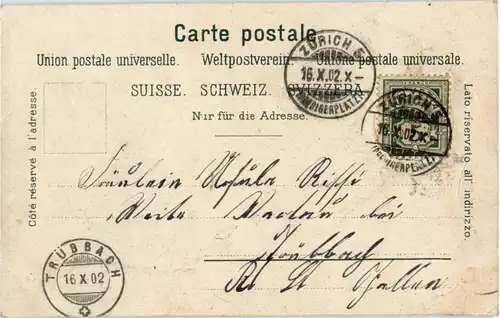 Carte postale.
Union postale universelle. Weltpostverein. Unione postale universale.
SUISSE. SCHWEIZ. SVIZZERA.
Nur für die Adresse.
Côté réservé à l'adresse.
Lato riservato all indirizzo.
ZÜRICH 5
16.X.02.X–
(PREDIGERPLATZ)
ZÜRICH 5
16.X.02.X–
(PREDIGERPLATZ)
Fräulein Ursula
bei
Trübbach
Kt. St. Gallen
TRÜBBACH
16 X 02